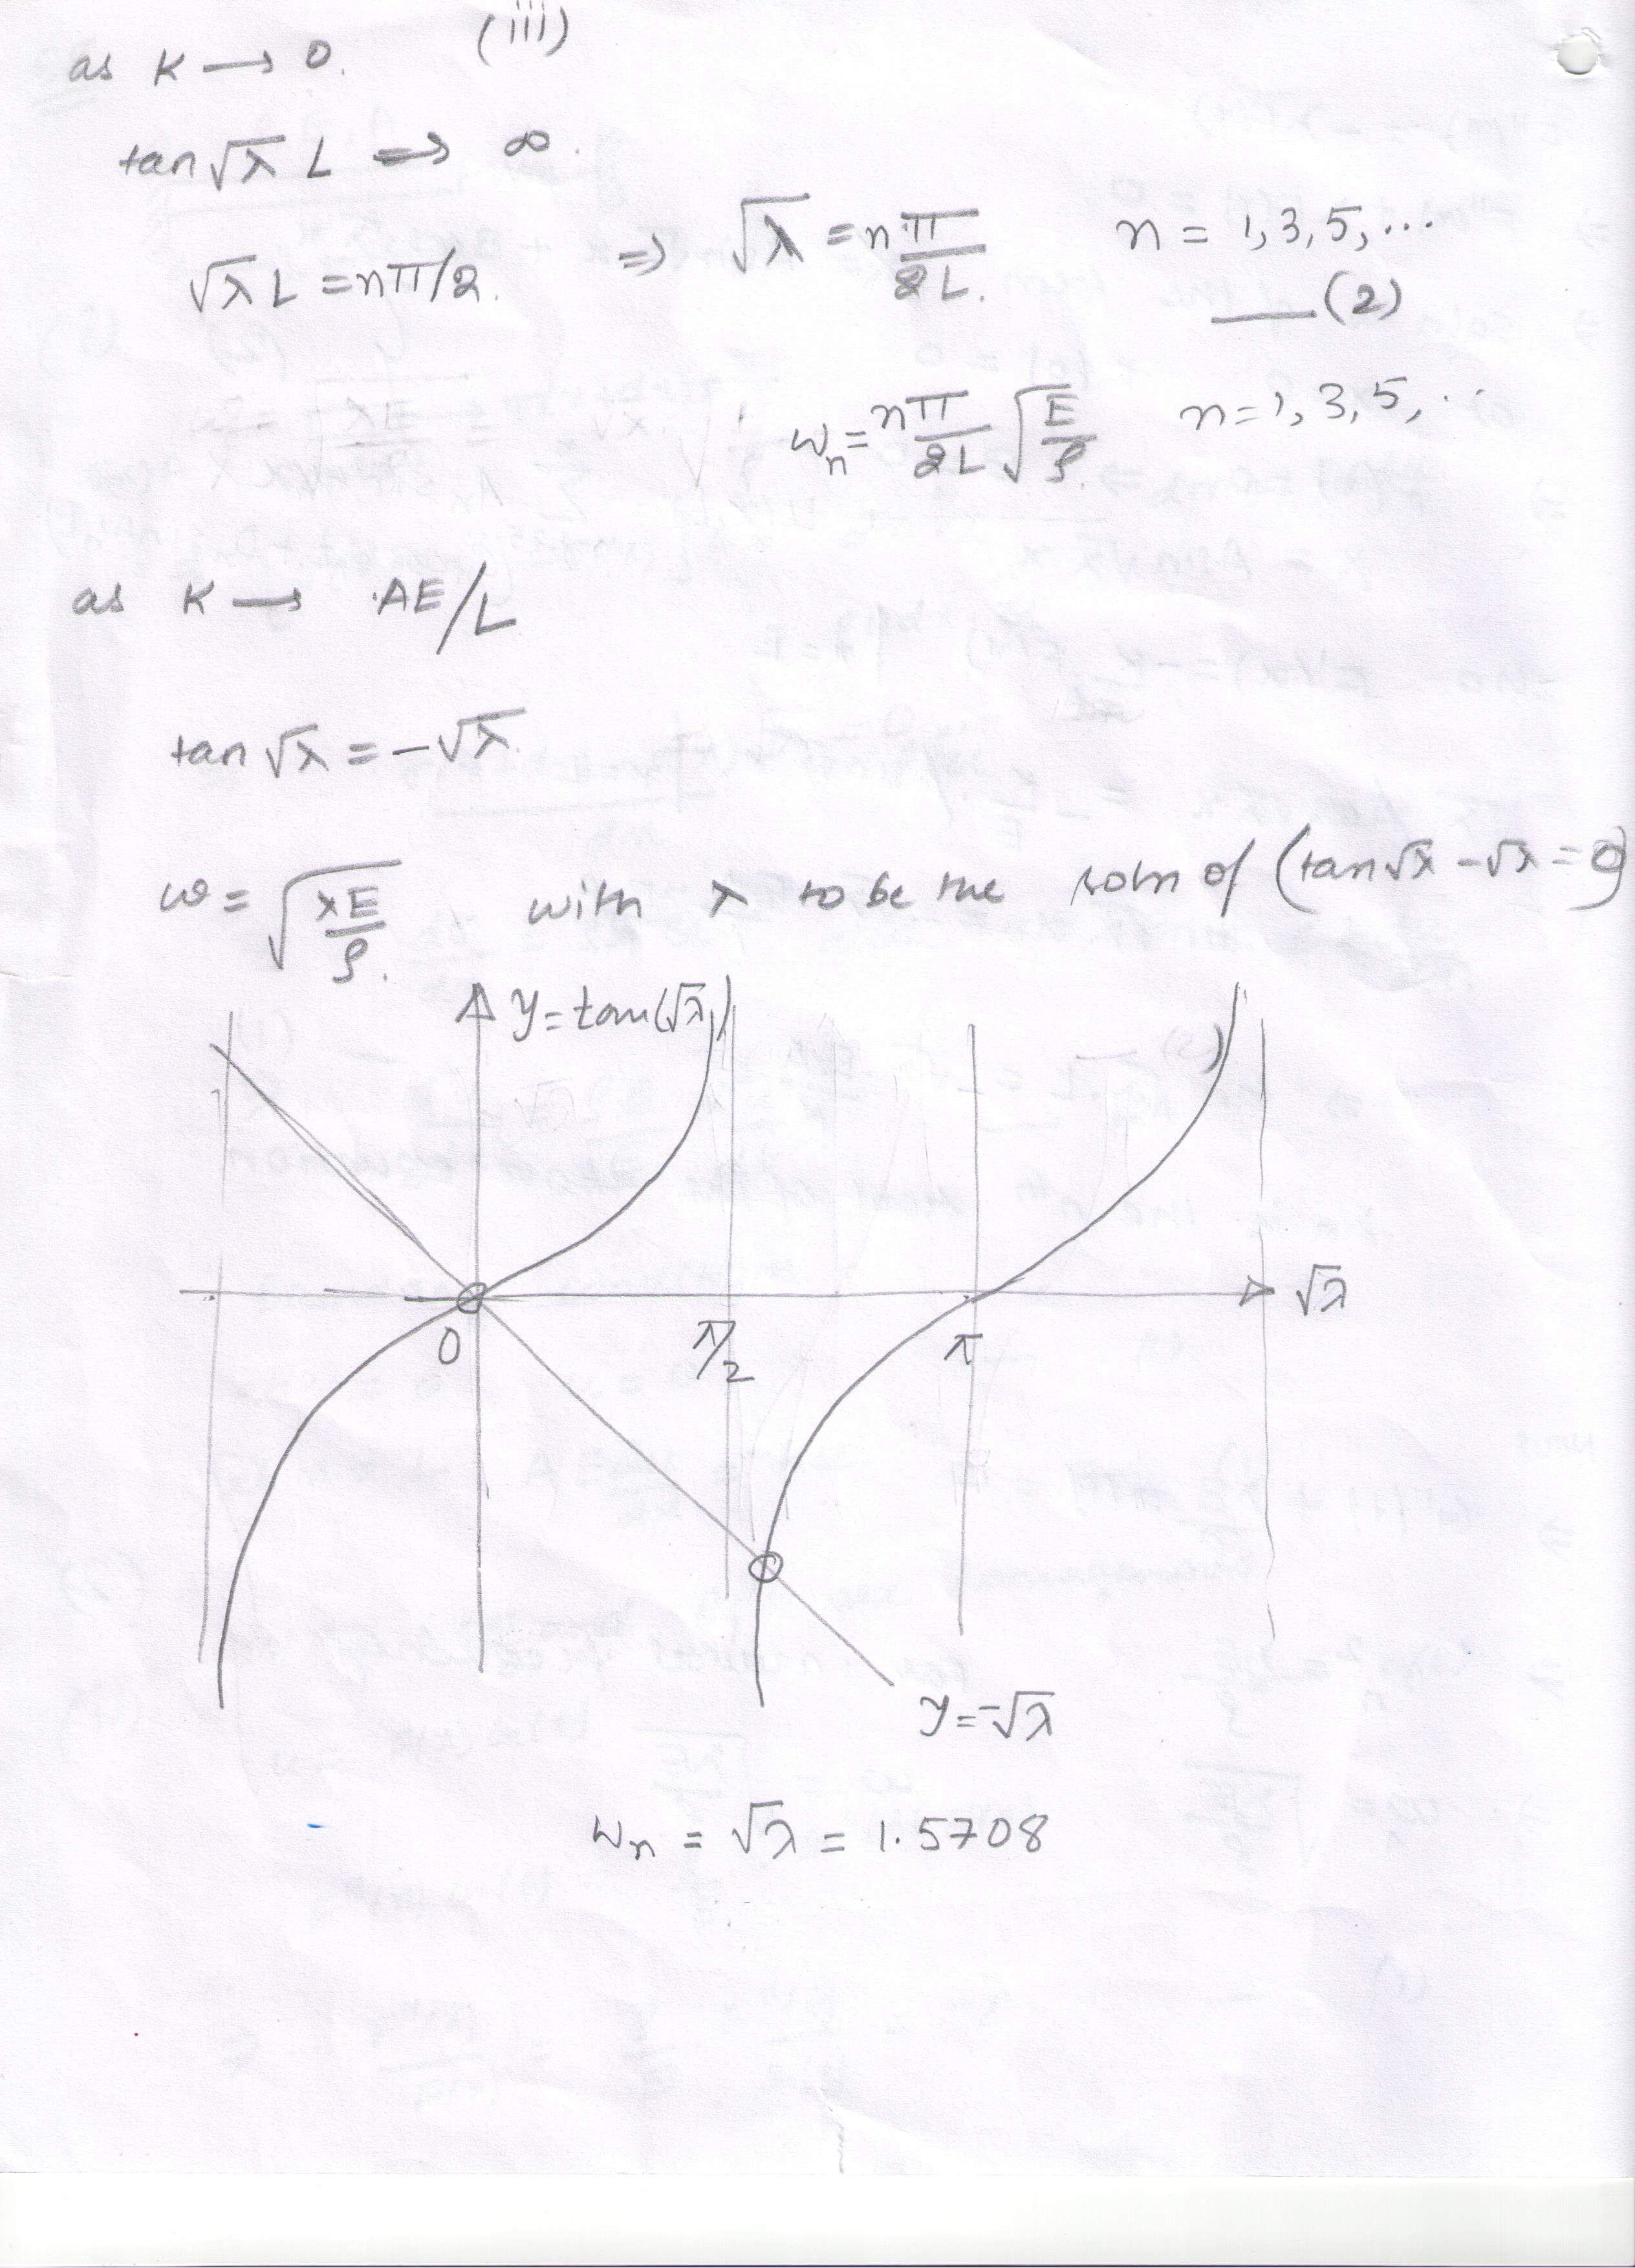 (iii)
as K → 0.
tan √λ L ⇒ ∞.
√λ L = nπ/2. ⇒ √λ = nπ/2L. n = 1,3,5,...
—(2)
ωn = nπ/2L √E/ρ. n=1,3,5,..
as K → AE/L
tan √λ = -√λ.
ω = √λE/ρ. with λ to be the soln of (tan√λ - √λ = 0)
y = tan(√λ)
√λ
0 π/2 π
y = -√λ
ωn = √λ = 1.5708